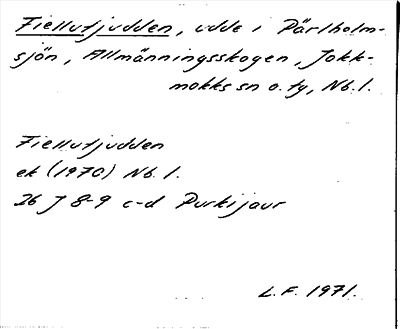 Fiellutjudden, udde i Pärlholm-
sjön, Allmänningsskogen, Jokk-
mokks sn o. ty, Nb. l.
Fiellutjudden
ek (1970) Nb. l.
26 J 8-9 c-d Purkijaur
L.F. 1971.